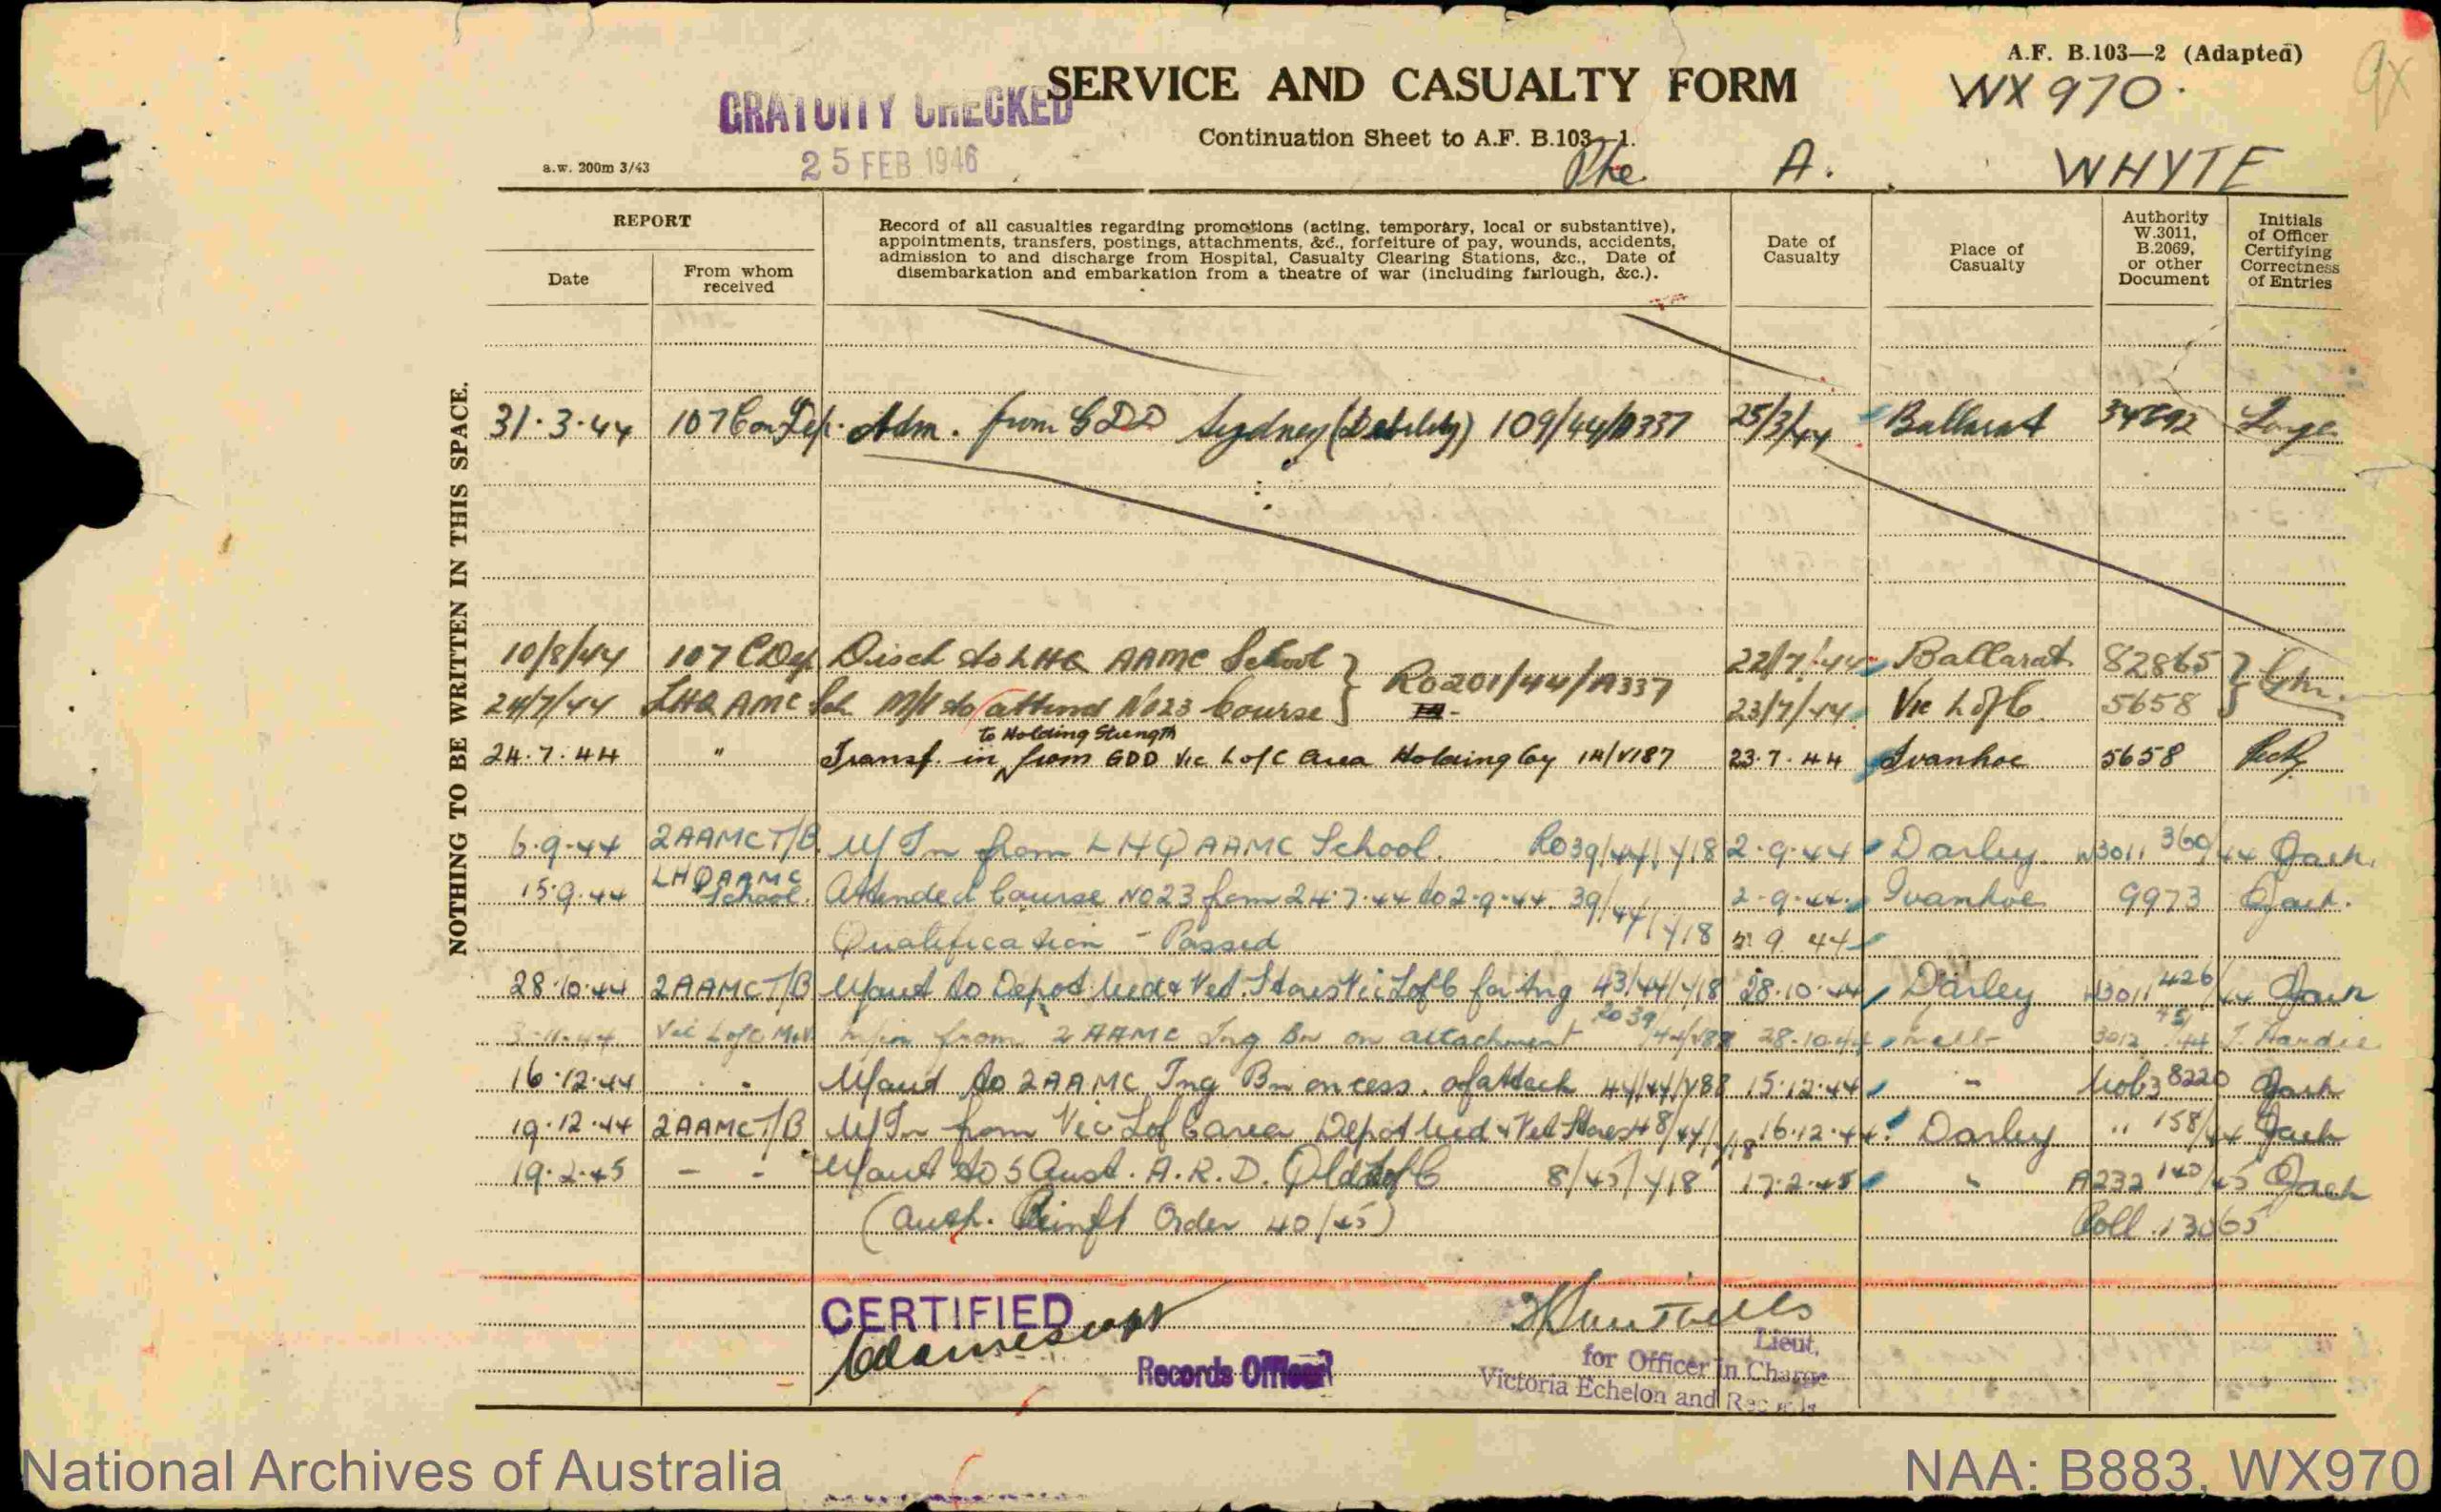 A.F. B.103—2 (Adapted)
SERVICE AND CASUALTY FORM
WX 970.
9x
GRATUITY CHECKED
Continuation Sheet to A.F. B.103—1.
25 FEB 1946
a.w. 200m 3/43
Pte. A. WHYTE
REPORT
Date
From whom received
Record of all casualties regarding promotions (acting, temporary, local or substantive),
appointments, transfers, postings, attachments, &c., forfeiture of pay, wounds, accidents,
admission to and discharge from Hospital, Casualty Clearing Stations, &c., Date of
disembarkation and embarkation from a theatre of war (including furlough, &c.).
Date of Casualty
Place of Casualty
Authority W.3011, B.2069, or other Document
Initials of Officer Certifying Correctness of Entries
NOTHING TO BE WRITTEN IN THIS SPACE.
31.3.44 107 Con Dep. Adm. from GDD Sydney (Debility) 109/44/A337 25/3/44 Ballarat
10/8/44 107 C Dep Disch to LHQ AAMC School 22/7/44 Ballarat 82865
RO201/44/A337
24/7/44 LHQ AMC Sch M/I to attend No23 Course 23/7/44 Vic L of C. 5658
to Holding Strength
24.7.44 " Transf. in from GDD Vic L of C Area Holding by 1A/V187 23.7.44 Ivanhoe 5658
6.9.44 2AAMC T/B. M/In from LHQ AAMC School. Ro39/44/Y18 2.9.44 Darley W3011 360/44
15.9.44 LHQ AAMC School. Attended Course No23 from 24.7.44 to 2.9.44. 39/44/Y18 2.9.44. Ivanhoe 9973
Qualification - Passed 9 44
28.10.44 2AAMC T/B M/out to Depot Med & Vet. Stores Vic L of C for tng 43/44/Y18 28.10.44 Darley W3011 426/44
3.11.44 Vic L of C M&V m/in from 2 AAMC Tng Bn on attachment Ro39/44/V88 28.10.44 Melb 3012 J. Hardie
16.12.44 " " M/out to 2AAMC Tng Bn on cess. of attach 44/44/V88 15.12.44 " Mob3 8220
19.12.44 2AAMC T/B M/In from Vic L of C area Depot Med & Vet Stores 48/44/Y18 16.12.44. Darley " 158/44
19.2.45 - - M/out to 5 Aust. A.R.D. Qld L of C 8/45/Y18 17.2.45 " A232 140/45
(auth. Reinft Order 40/45) Roll 13065
CERTIFIED
Lieut,
Records Officer
for Officer in Charge
Victoria Echelon and Records
National Archives of Australia
NAA: B883, WX970